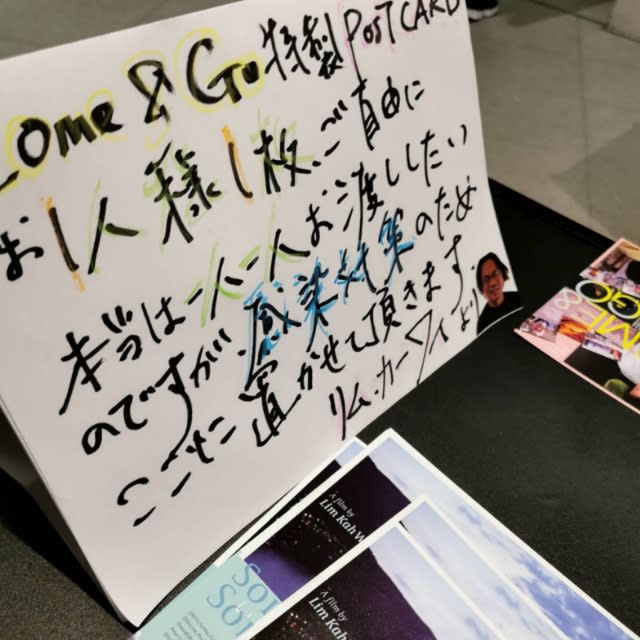 ome & Go 特製 POSTCARD
お1人様1枚ご自由に
本当は一人一人お渡ししたい
のですが感染対策のため
ここに置かせて頂きます.
リム・カーワイより
A film by
Lim Kah W
A film by
Lim Kah